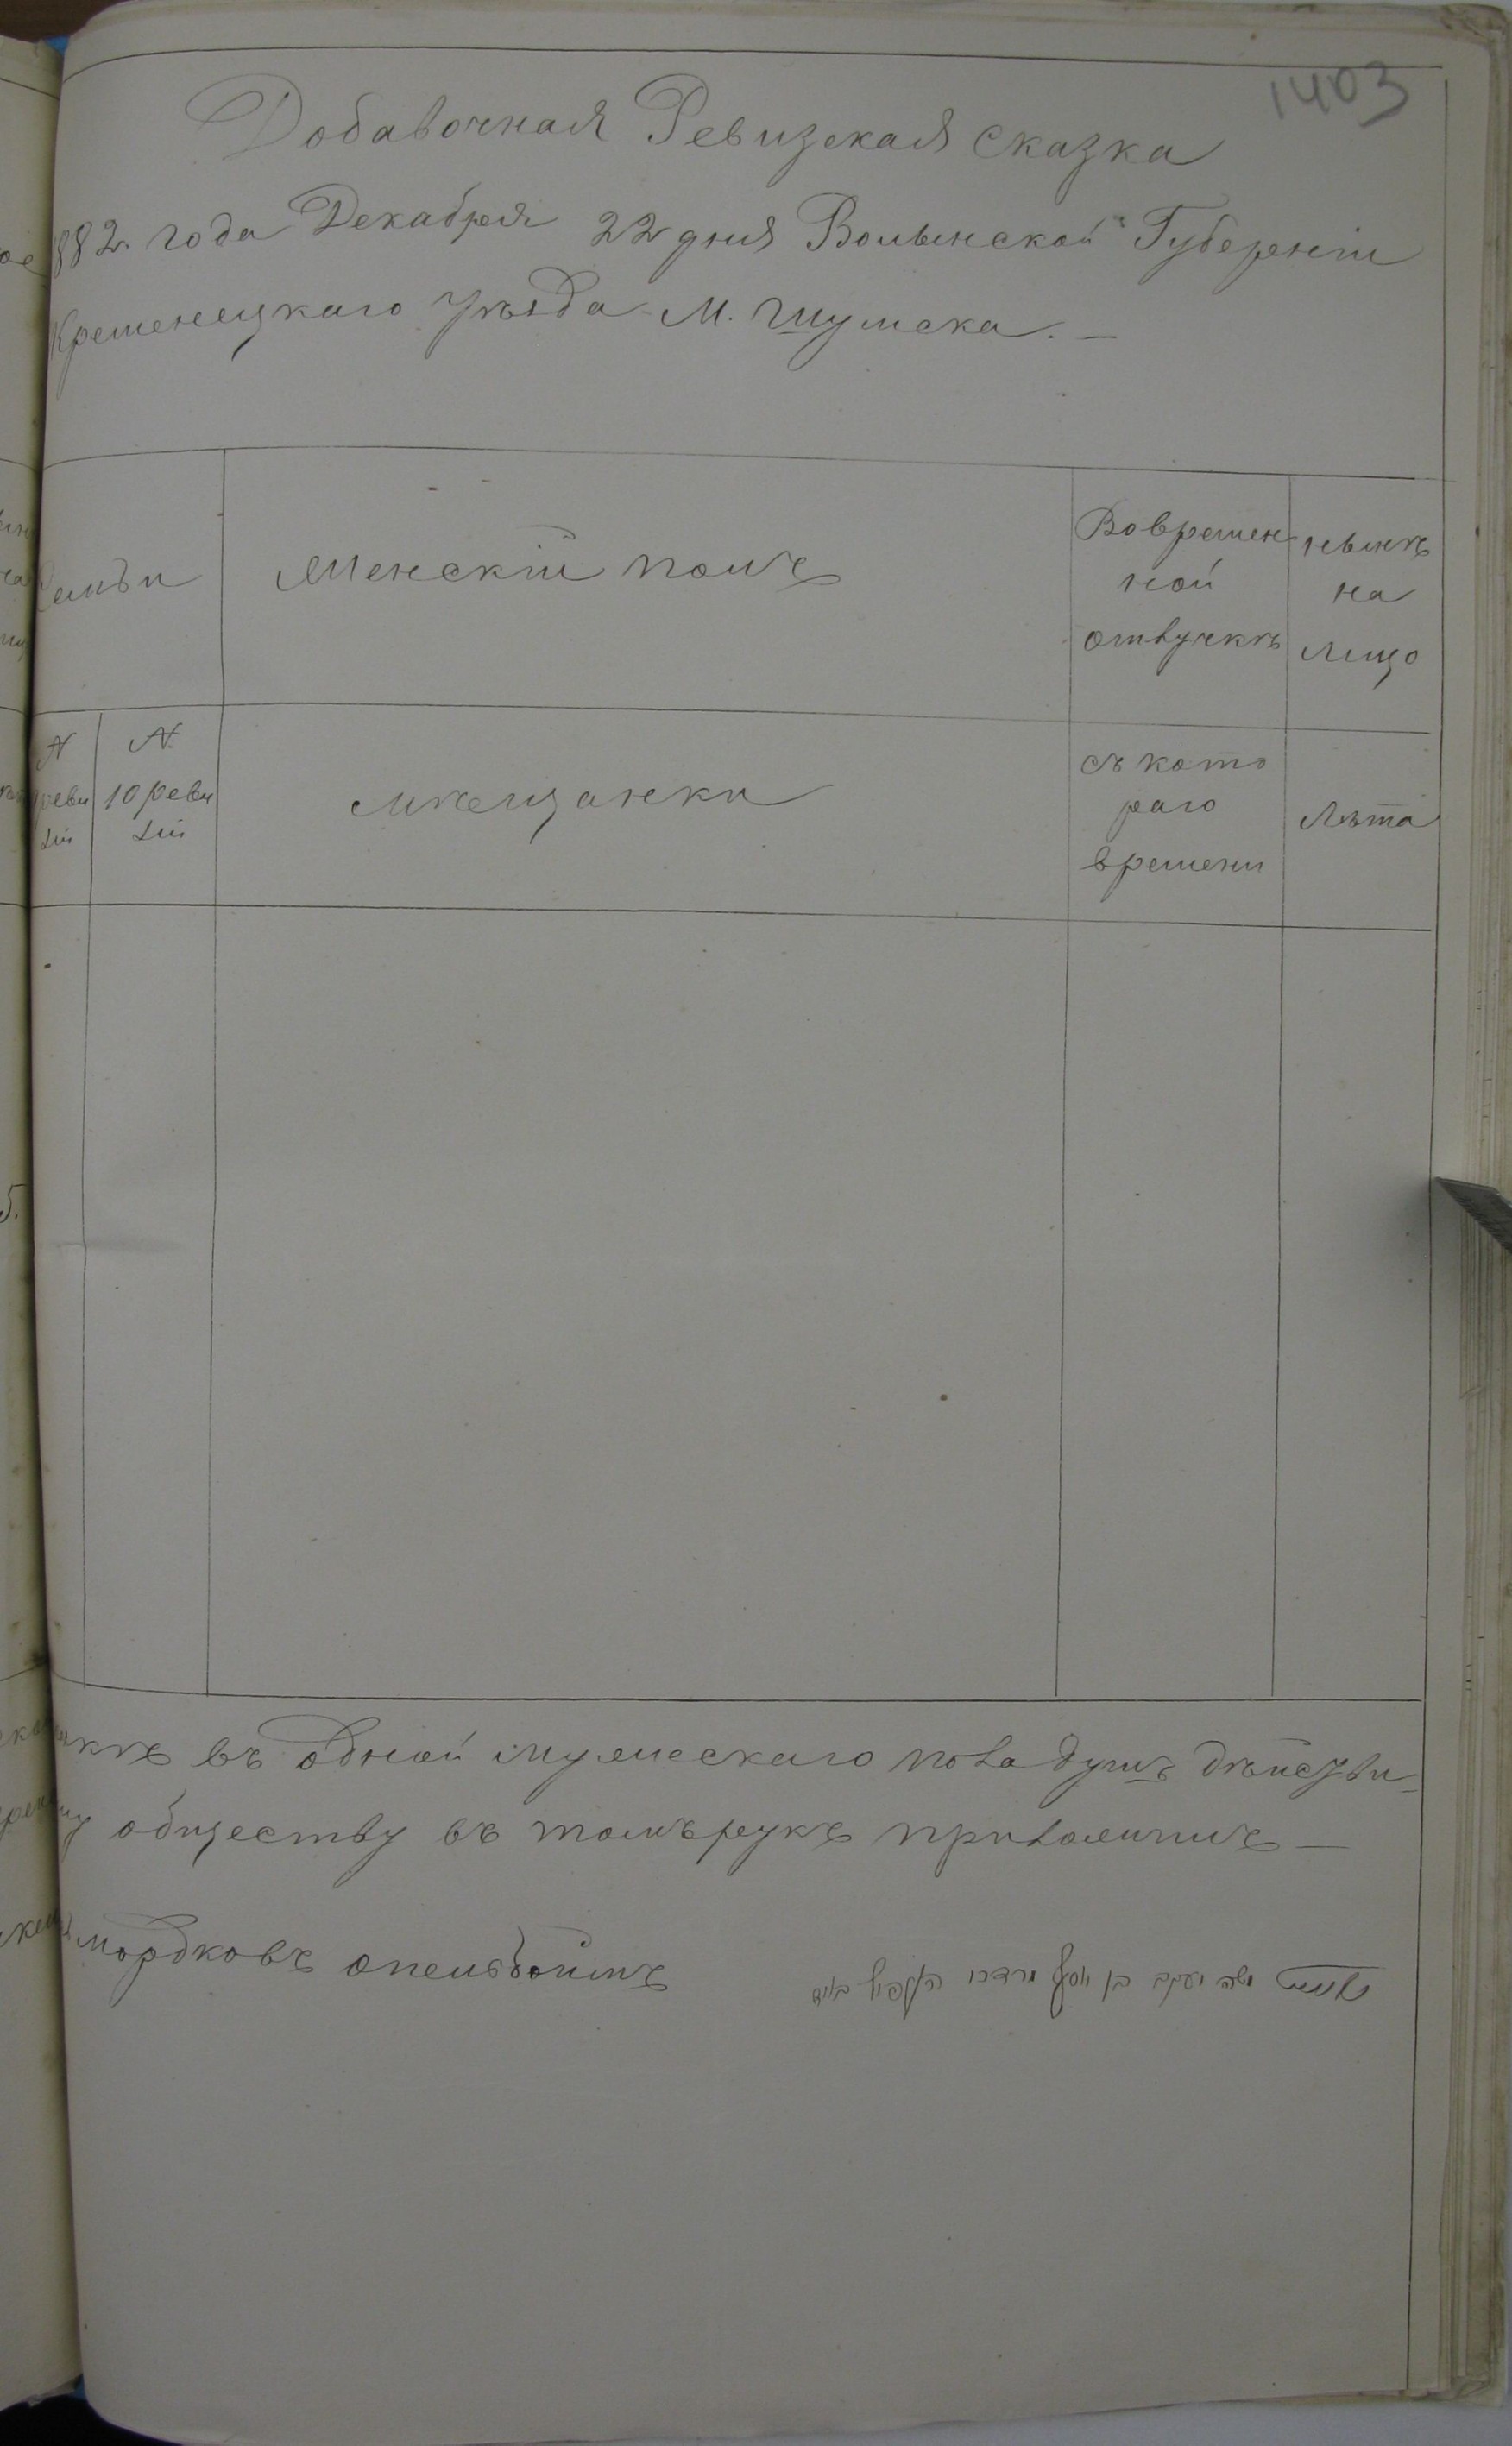 1403
Добавочная Ревизская Сказка
1882. года Декабря 22 дня Волынской Губерніи
Кременецкаго Уѣзда М. Шумска. —
Семьи
Женскій полъ
Во времен
ной
отлучкѣ
нынѣ
на
лицо
№
реви
зіи
№
10 реви
зіи
мѣщанки
съ кото
раго
времени
Лѣта
въ одной мужескаго пола душѣ дѣйстви
обществу въ томъ руку приложилъ —
Мордковъ